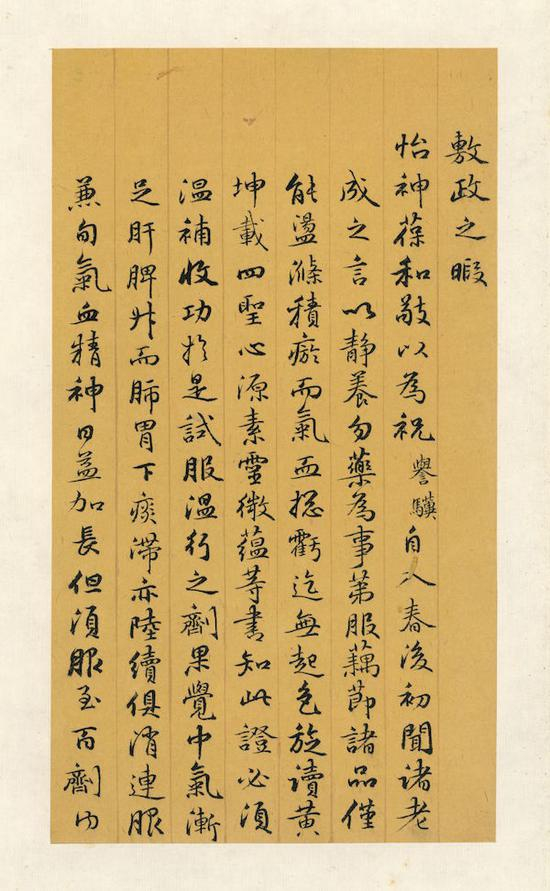 敷政之暇
怡神葆和敬以為祝譽驥自入春後初聞諸老
成之言以静養勿藥為事第服藕節諸品僅
能盪滌積瘀而氣血揔虧迄無起色旋讀黃
坤載四聖心源素靈微蘊等書知此證必須
温補收功於是試服温行之劑果覺中氣漸
足肝脾升而肺胃下痰滯亦陸續俱消連服
兼旬氣血精神日益加長但須服至百劑內